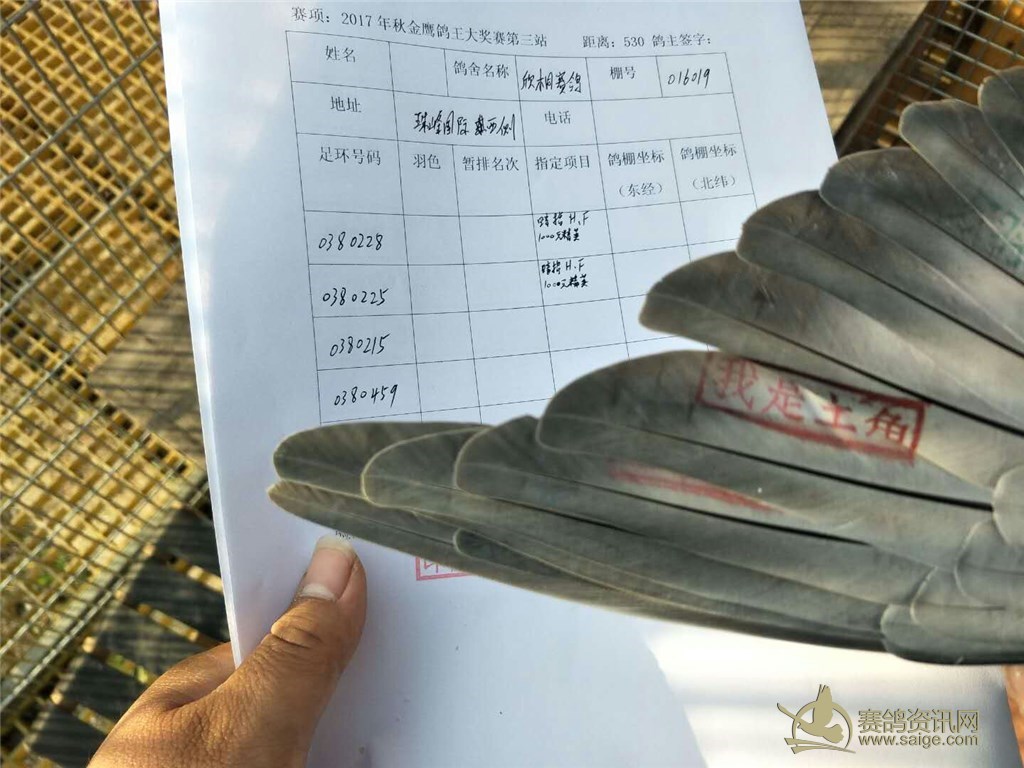 赛项：2017 年秋金鹰鸽王大奖赛第三站 距离：530 鸽主签字：
姓名 鸽舍名称 欣相赛鸽 棚号 016019
地址 珠峰国际 西侧 电话
足环号码 羽色 暂排名次 指定项目 鸽棚坐标（东经） 鸽棚坐标（北纬）
0380228 H.F
1000元精英
0380225 H.F
1000元精英
0380215
0380459
我是主角
赛鸽资讯网
www.saige.com